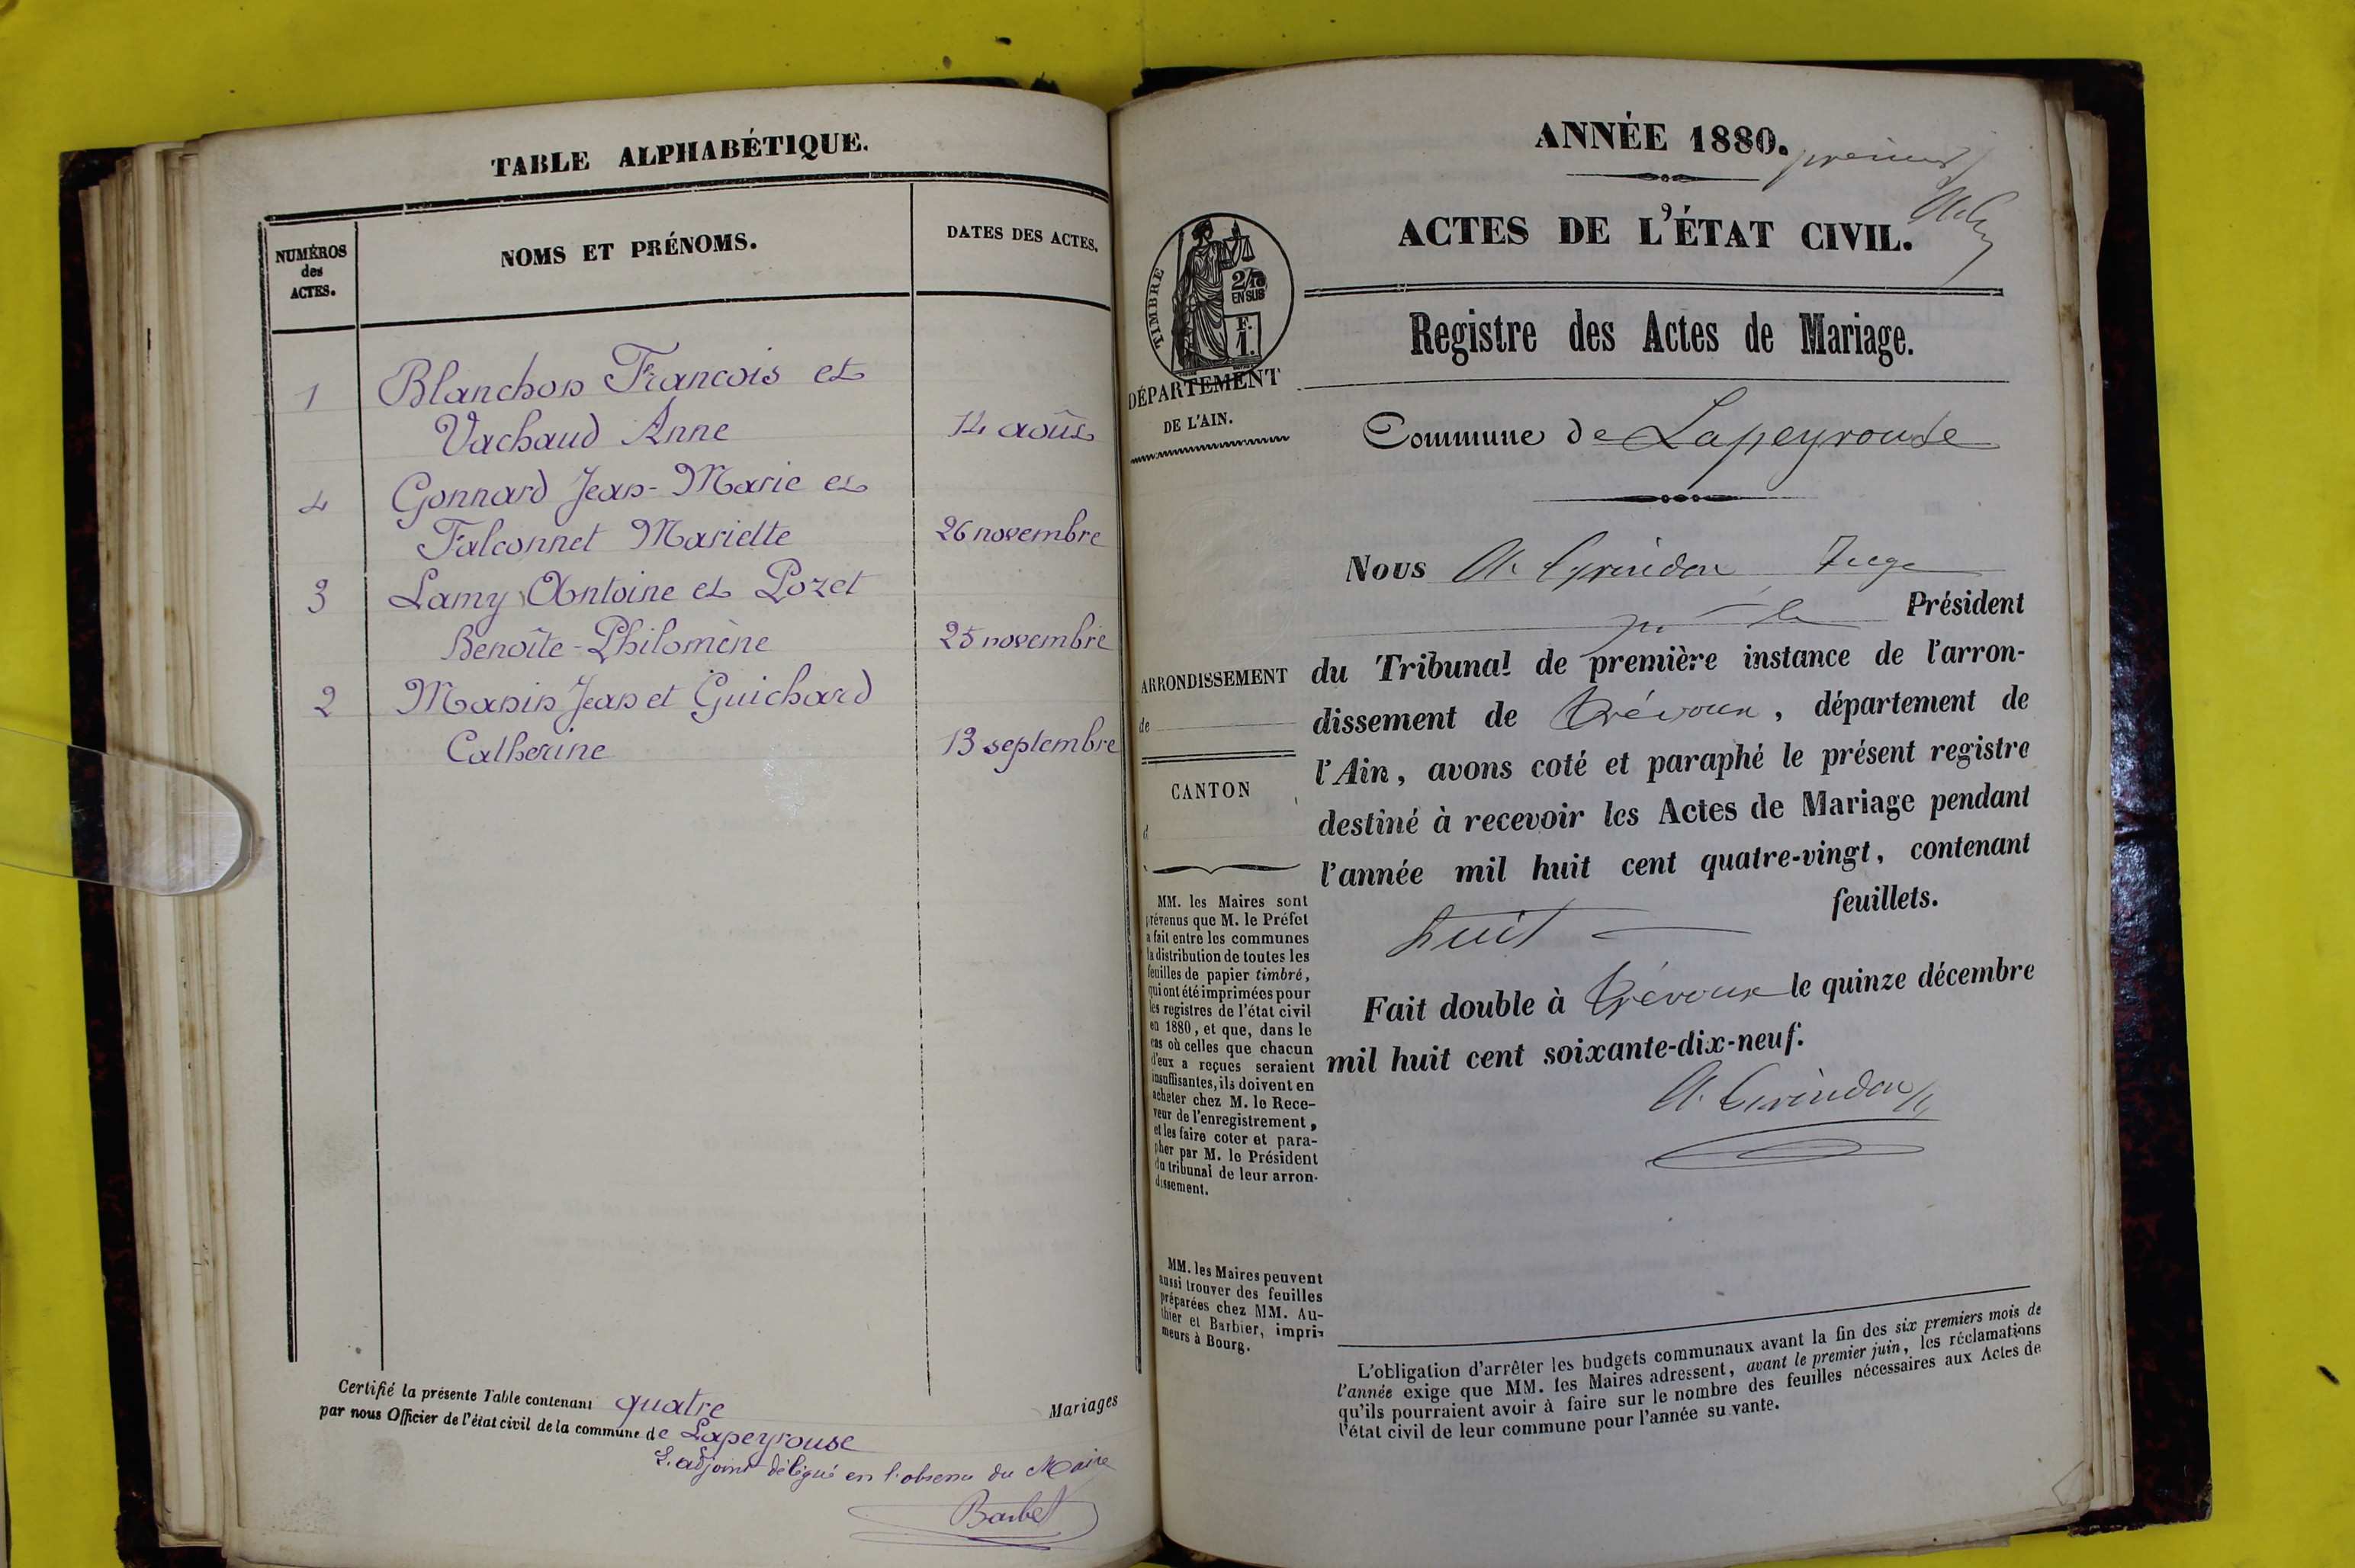 TABLE ALPHABÉTIQUE.
NUMÉROS
des
ACTES.
NOMS ET PRÉNOMS.
DATES DES ACTES.
1 Blanchon Francois et
Vachaud Anne 14 août
4 Gonnard Jean-Marie et
Falconnet Mariette 26 novembre
3 Lamy Antoine et Pozet
Benoîte-Philomène 25 novembre
2 Manin Jean et Guichard
Catherine 13 septembre
Certifié la présente Table contenant quatre Mariages
par nous Officier de l'état civil de la commune de Lapeyrouse
L'adjoint délégué en l'absence du Maire
Barbet
ANNÉE 1880.
premier
ACTES DE L'ÉTAT CIVIL.
TIMBRE
2/10
EN SUS
F.
1.
Registre des Actes de Mariage.
DÉPARTEMENT
DE L'AIN.
Commune de Lapeyrouse
Nous A. Juge
Président
du Tribunal de première instance de l'arron-
dissement de Trévoux, département de
l'Ain, avons coté et paraphé le présent registre
destiné à recevoir les Actes de Mariage pendant
l'année mil huit cent quatre-vingt, contenant
huit feuillets.
Fait double à Trévoux le quinze décembre
mil huit cent soixante-dix-neuf.
ARRONDISSEMENT
de
CANTON
d
MM. les Maires sont
prévenus que M. le Préfet
a fait entre les communes
la distribution de toutes les
feuilles de papier timbré,
qui ont été imprimées pour
les registres de l'état civil
en 1880, et que, dans le
cas où celles que chacun
d'eux a reçues seraient
insuffisantes, ils doivent en
acheter chez M. le Rece-
veur de l'enregistrement,
et les faire coter et para-
pher par M. le Président
du tribunal de leur arron-
dissement.
MM. les Maires peuvent
aussi trouver des feuilles
préparées chez MM. Au-
thier et Barbier, impri-
meurs à Bourg.
L'obligation d'arrêter les budgets communaux avant la fin des six premiers mois de
l'année exige que MM. les Maires adressent, avant le premier juin, les réclamations
qu'ils pourraient avoir à faire sur le nombre des feuilles nécessaires aux Actes de
l'état civil de leur commune pour l'année su vante.